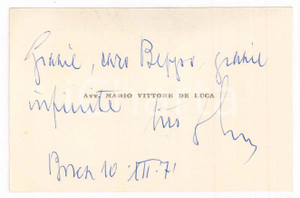 Grazie, caro Beppe, grazie
infinite tuo
Avv. MARIO VITTORE DE LUCA
10 XII. 71